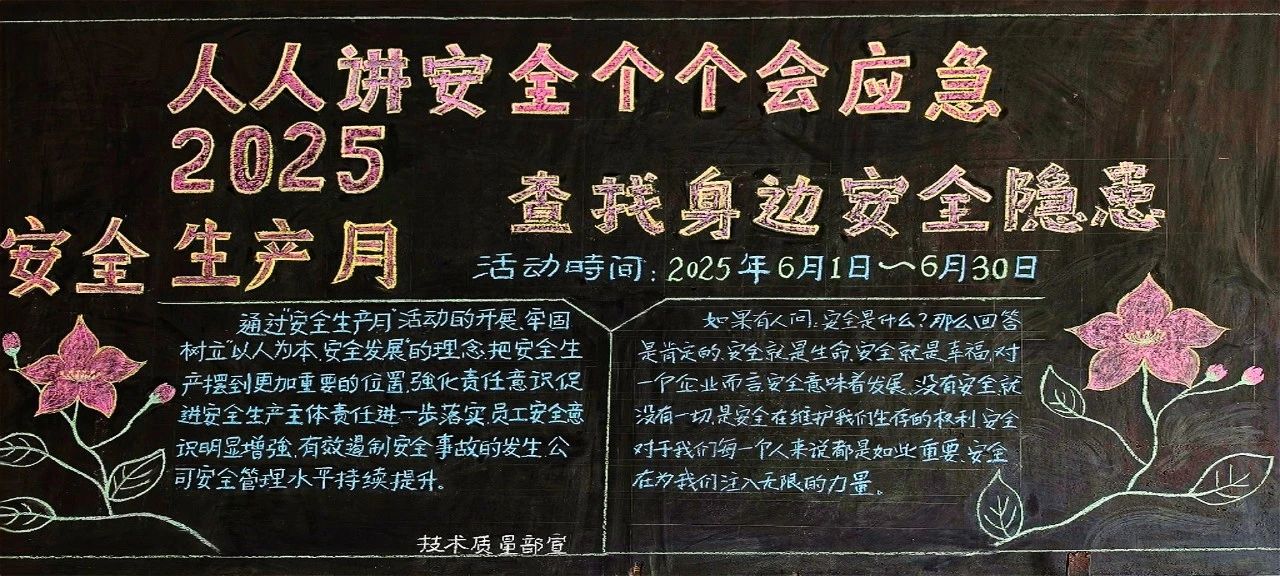 人人讲安全个个会应急
2025
查找身边安全隐患
安全生产月
活动時间：2025年6月1日～6月30日
通过“安全生产月”活动的开展、牢固
树立“以人为本、安全发展”的理念、把安全生
产摆到更加重要的位置、强化责任意识、促
进安全生产主体责任进一步落实、员工安全意
识明显增强、有效遏制安全事故的发生、公
司安全管理水平持续提升。
技术质量部宣
如果有人问：安全是什么？那么回答
是肯定的、安全就是生命、安全就是幸福、对
一个企业而言安全意味着发展、没有安全就
没有一切、是安全在维护我们生存的权利、安全
对于我们每一个人来说都是如此重要、安全
在为我们注入无限的力量。